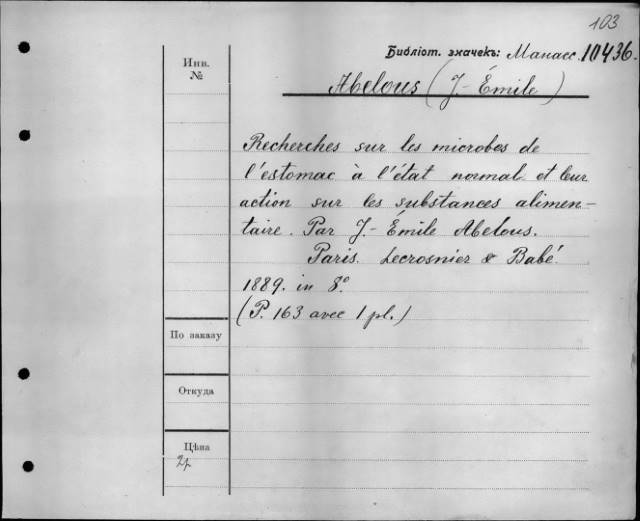 103
Библіот. значекъ: Манасс. 10436.
Инв.
№
Abelous (J.-Émile)
Recherches sur les microbes de
l'estomac à l'état normal et leur
action sur les substances alimen-
taire. Par J.-Émile Abelous.
Paris. Lecrosnier & Babé.
1889. in 8°.
(P. 163 avec 1 pl.)
По заказу
Откуда
Цѣна
2р